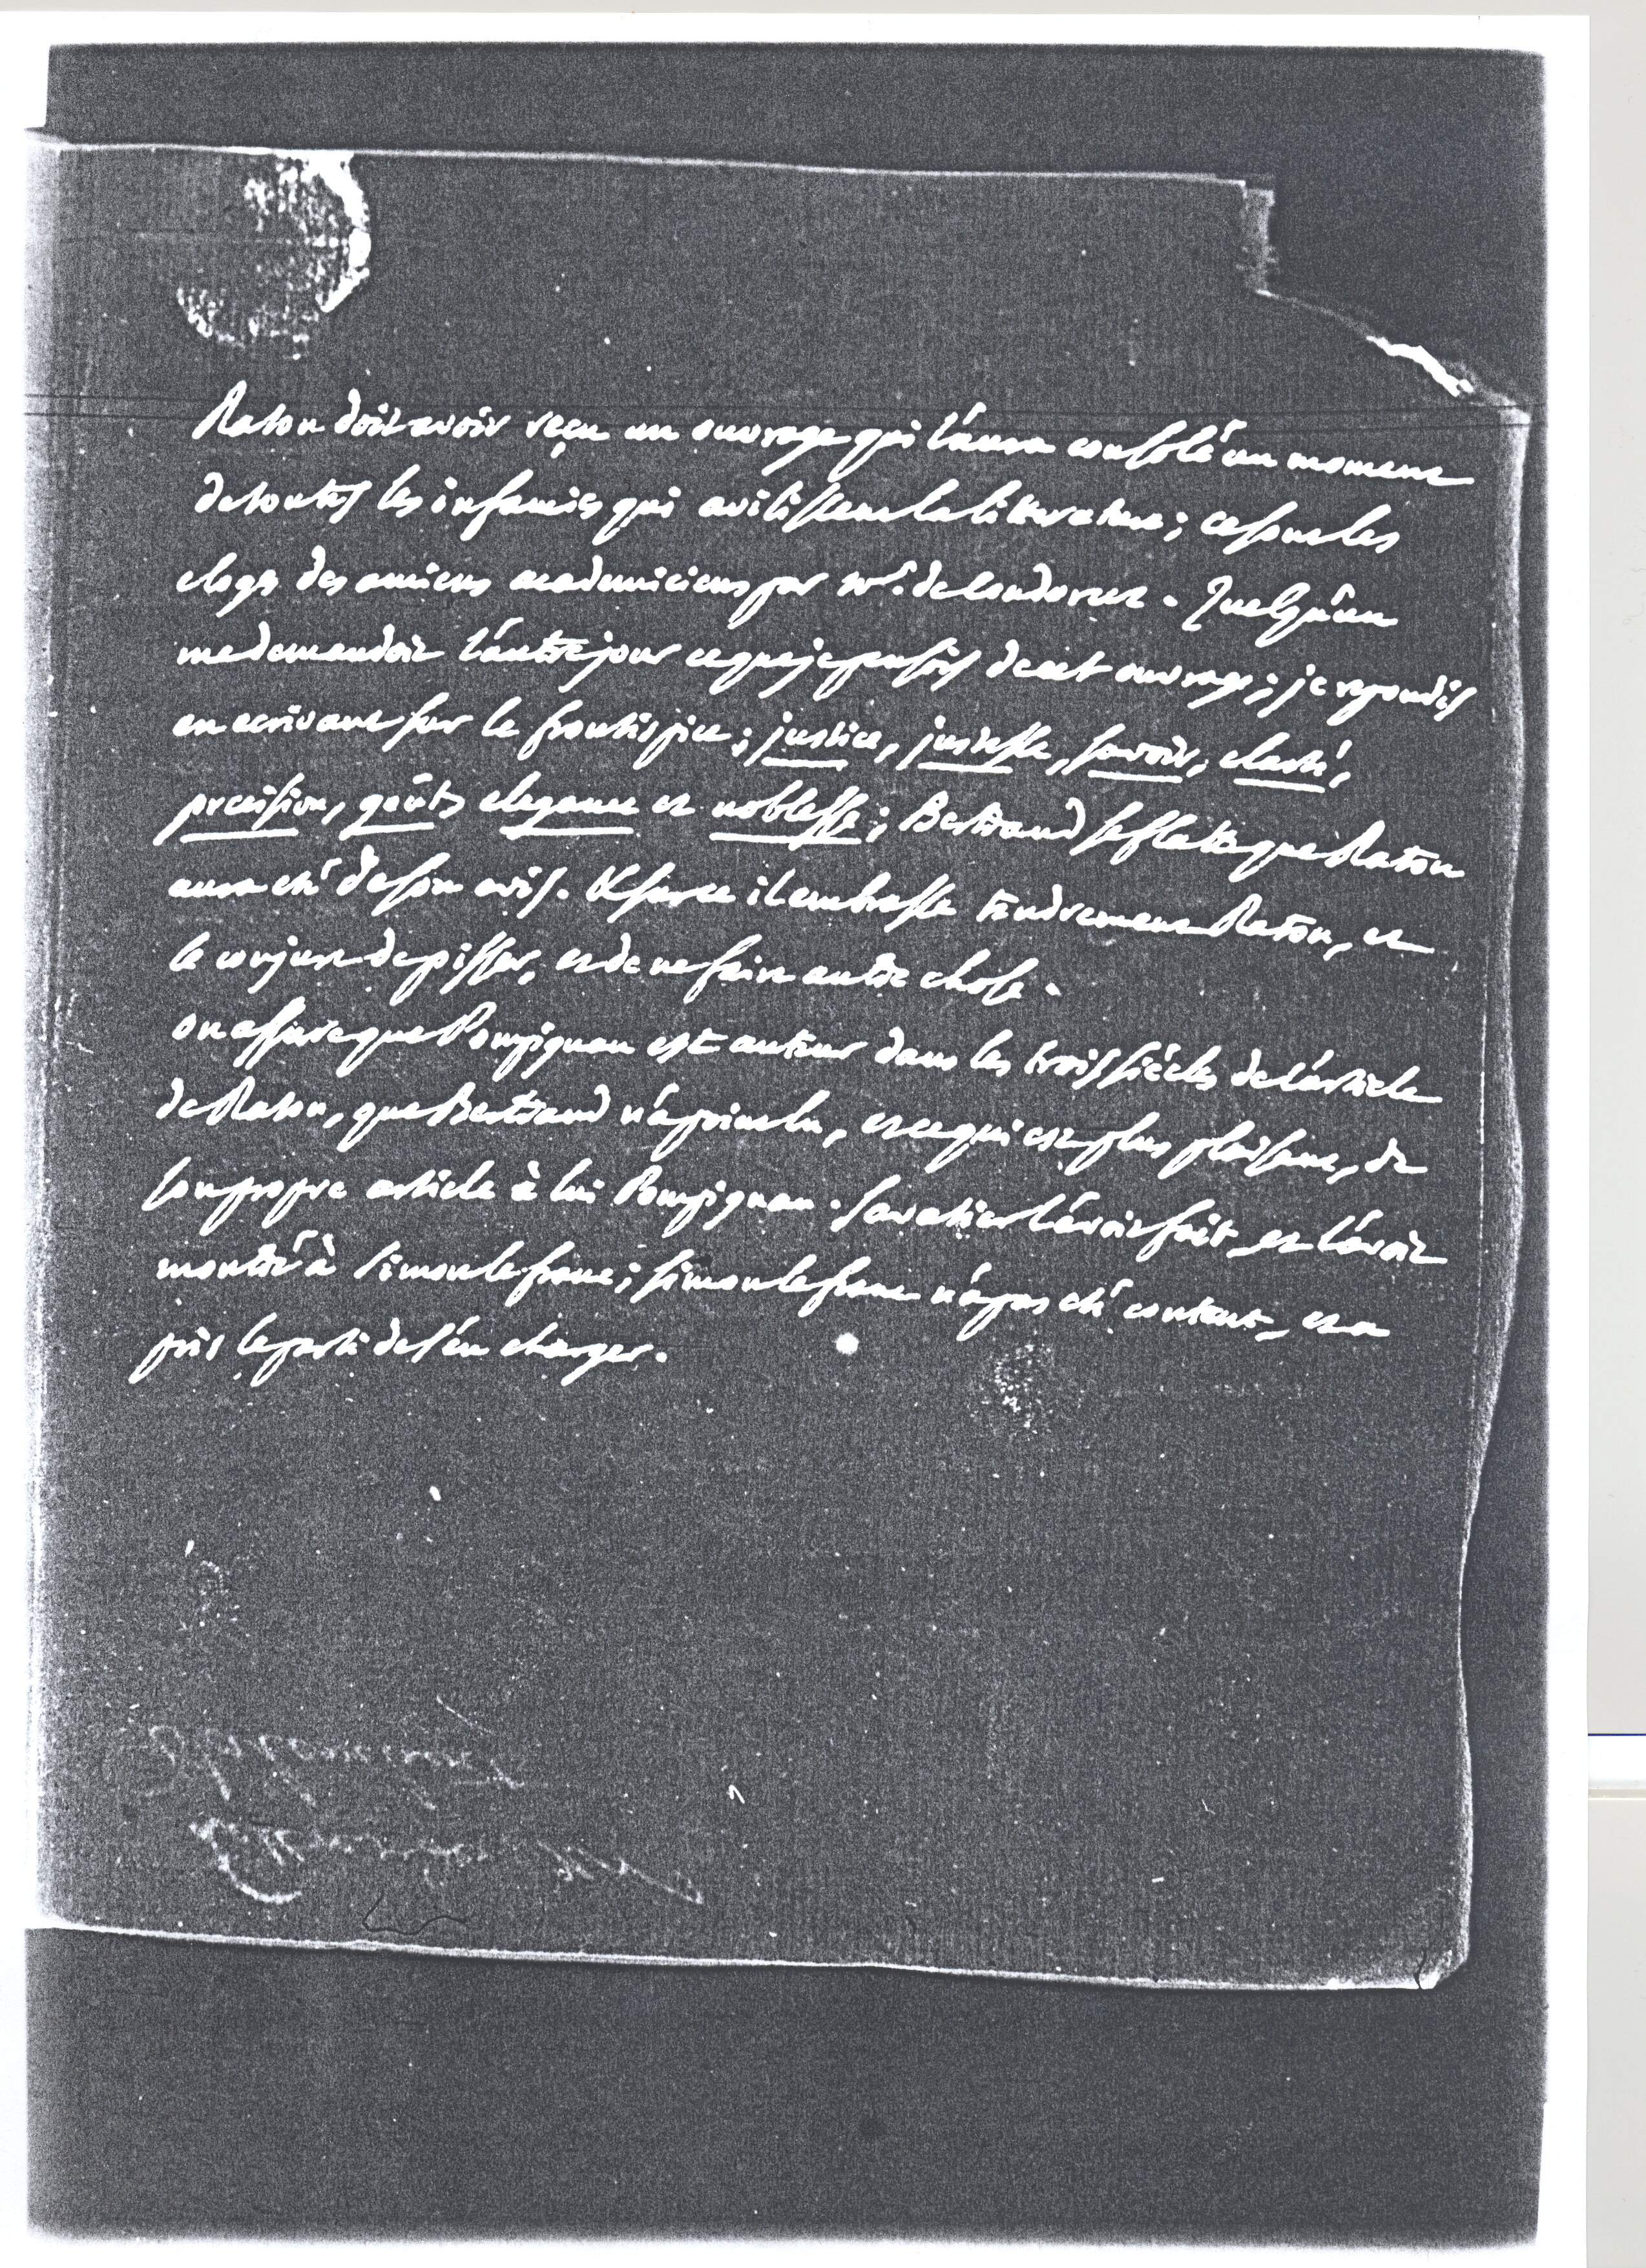 Raton doit avoir reçu un ouvrage qui l'aura consolé un moment
de toutes les infamies qui avilissent la litterature; ce sont les
eloges des anciens academiciens par Mr. de Condorcet. Quelqu'un
me demandoit l'autre jour ce que je pensois de cet ouvrage; je repondis
en ecrivant sur le frontispice; justice, justesse, savoir, clarté,
precision, goût, elegance et noblesse; Bertrand se flatte que Raton
aura été de son avis. Et sur ce il embrasse tendrement Raton, et
le conjure de pisser, et de ne faire autre chose.
on assure que Pompignan est auteur dans les trois siécles de l'article
de Raton, que Bertrand n'a point lu, et ce qui est plus plaisant, de
son propre article à lui Pompignan. Savatier l'avoit fait, et l'avoit
montré à Simon le franc; Simon le franc n'a pas été content, et a
pris le parti de s'en charger.